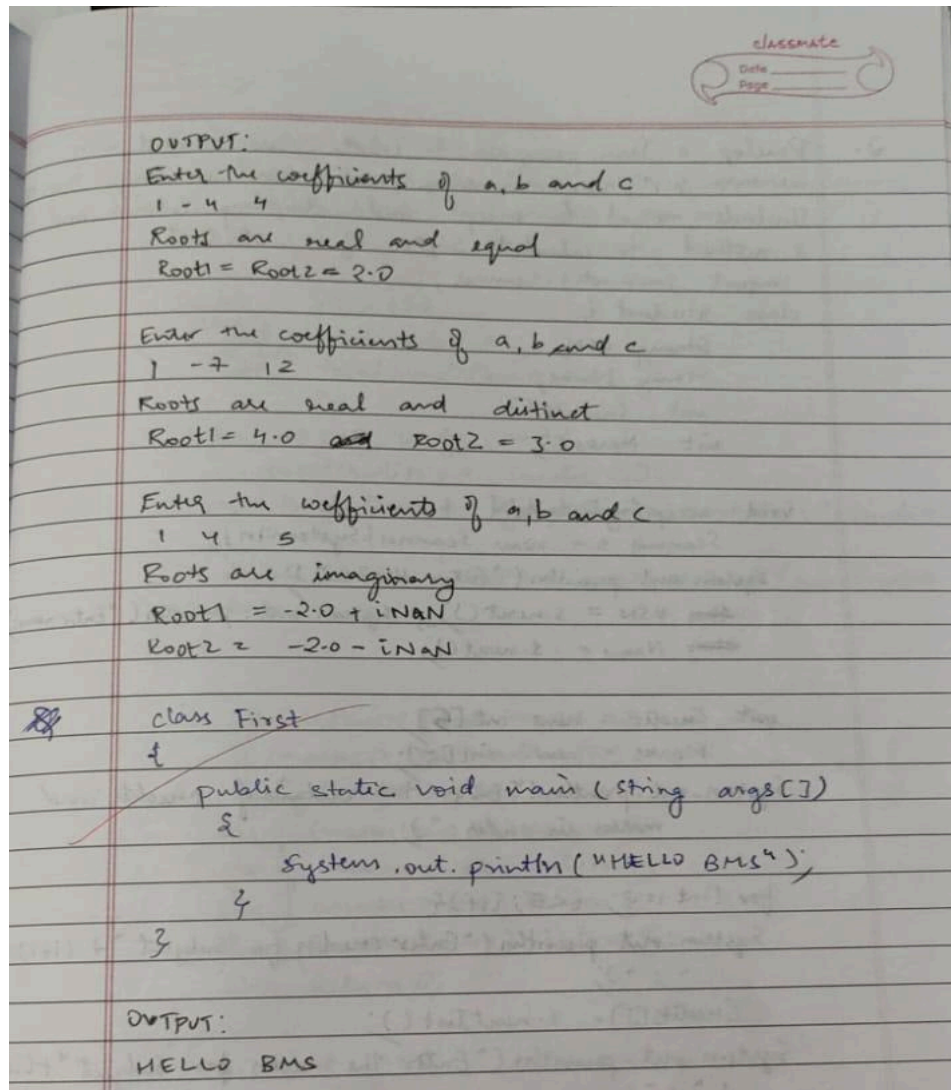 classmate
Date
Page
OUTPUT:
Enter the coefficients of a, b and c
1 -4 4
Roots are real and equal
Root1 = Root2 = 2.0
Enter the coefficients of a, b and c
1 -7 12
Roots are real and distinct
Root1 = 4.0 Root2 = 3.0
Enter the coefficients of a, b and c
1 4 5
Roots are imaginary
Root1 = -2.0 + iNaN
Root2 = -2.0 - iNaN
class First
{
public static void main (string args[])
{
System.out.println ("HELLO BMS");
}
}
OUTPUT:
HELLO BMS